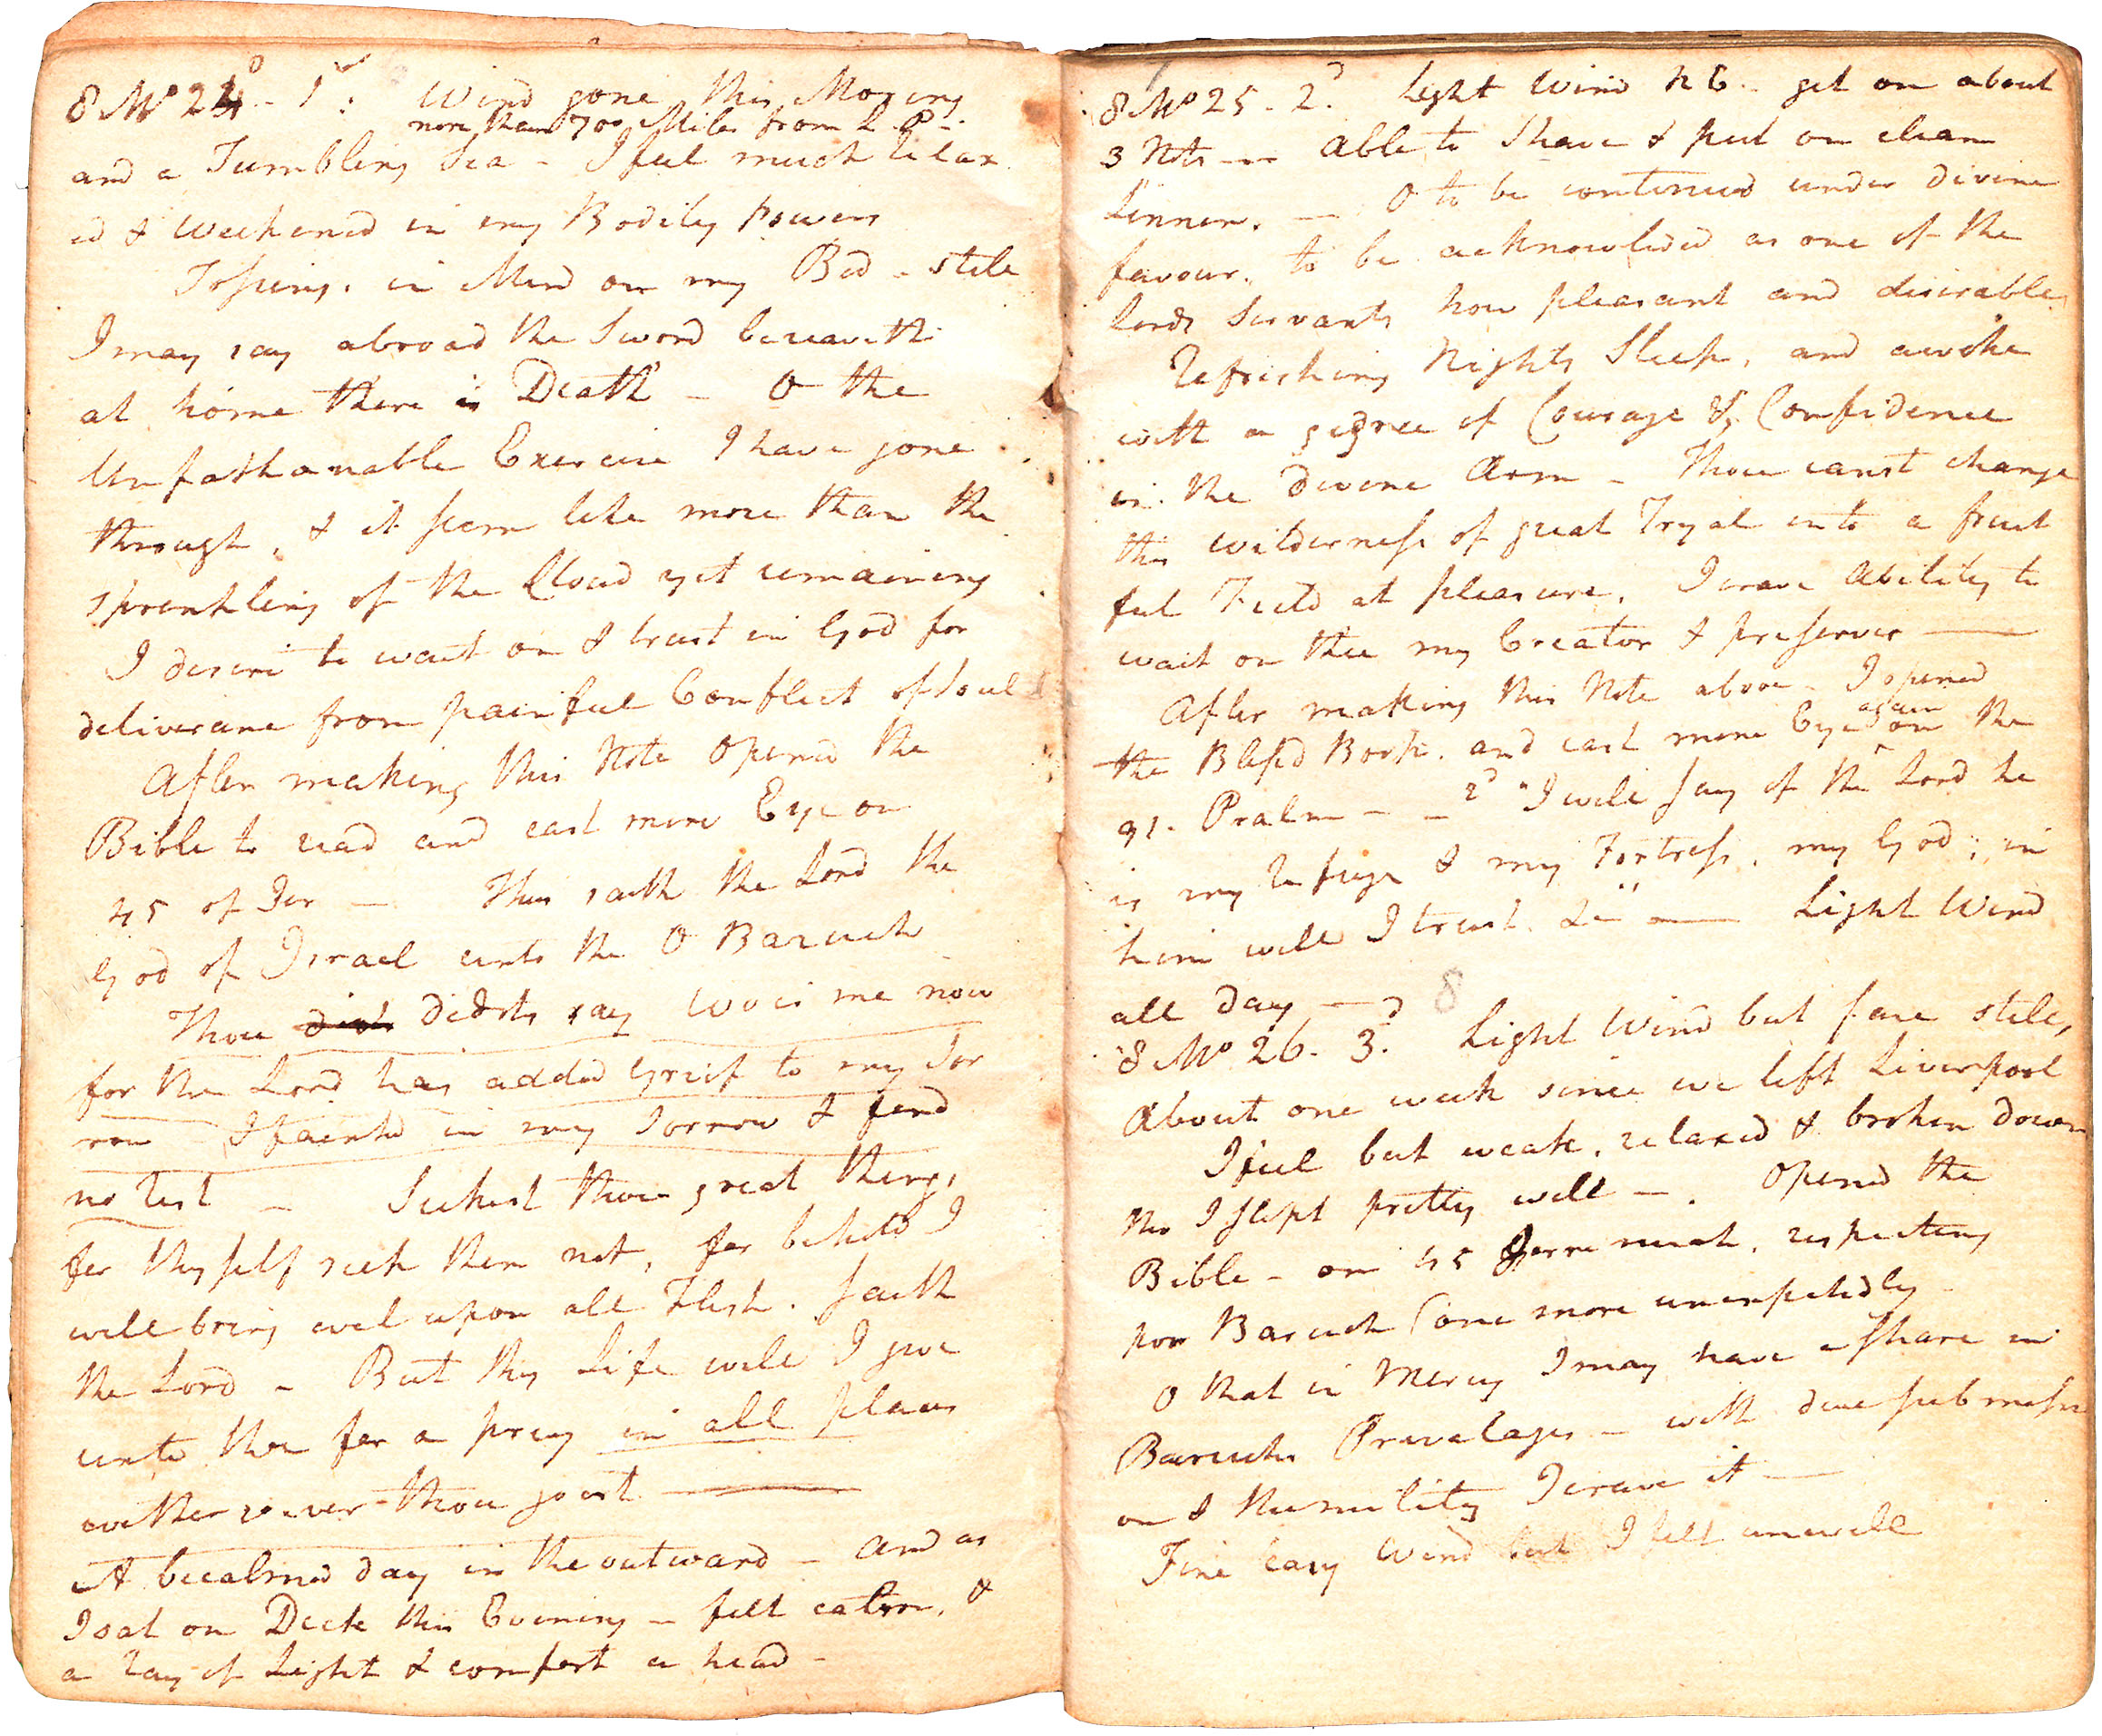 8 Mo 24 - 1st: Wind gone this Morning
more than 700 Miles from L. P -
and a Tumbling Sea - I feel much relax
ed & weekened in my Bodiley powers
Tossing. in Mind on my Bed - stile
I may say abroad the Sword bereaveth
at home there is Death - O the
Unfathamable Exercise I have gone
through, & it seem like more than the
sprenkling of the Cloud yet remaining
I desire to wait on & trust in God for
deliverane from painful Conflict of soul
After making this Note Opened the
Bible to read and cast mine Eye on
45 of Jer — Thus saith the Lord the
God of Israel unto the O Baruch
Thou didst say Wo is me now
for the Lord has added Grief to my Sor
row I fainted in my Sorrow & find
no rest - Seekest thou great things
for thyself seek them not, for behold I
will bring evel upon all Flesh. saith
the Lord - But thy Life will I give
unto thee for a prey in all places
wither soever thou goest —
A becalmed day in the outward - and as
I sat on Deck this Evening - felt calm, &
a ray of Light & comfort a head -
8 Mo 25 - 2d. Light Wind N E - get on about
3 Nts — Able to Shave & put on clean
Linnen. — O to be continued under divine
favour. to be acknowlided as one of the
Lords Servants how pleasant and desirable
Refrishing Nights Sleep, and awoke
with a degree of Courage & Confidence
in the Devine Arm - Thou canst change
this wilderness of great Tryal into a fruit
ful Field at pleasure. I crave Ability to
wait on thee my Creator & preserver —
After making this Note above - I opened
the Blessd Book. and cast mine Eye again on the
91. Psalm - - 2d "I will say of the Lord he
is my Refuge & my Fortress. my God; in
him will I trust. &c" — Light Wind
all day —
8
8 Mo 26. 3d. Light Wind but fare stile,
About one week since we left Liverpool
I feel but weak, relaxed & broken down
tho I slept pretty well -. Opened the
Bible - on 45 Jerremiah, respecting
poor Baruch (once more unexpectedly
O that in Mercy I may have a share in
Baruchs Privalages - with due submissi
on & Humility I crave it —
Fine Easy Wind but I felt unwell